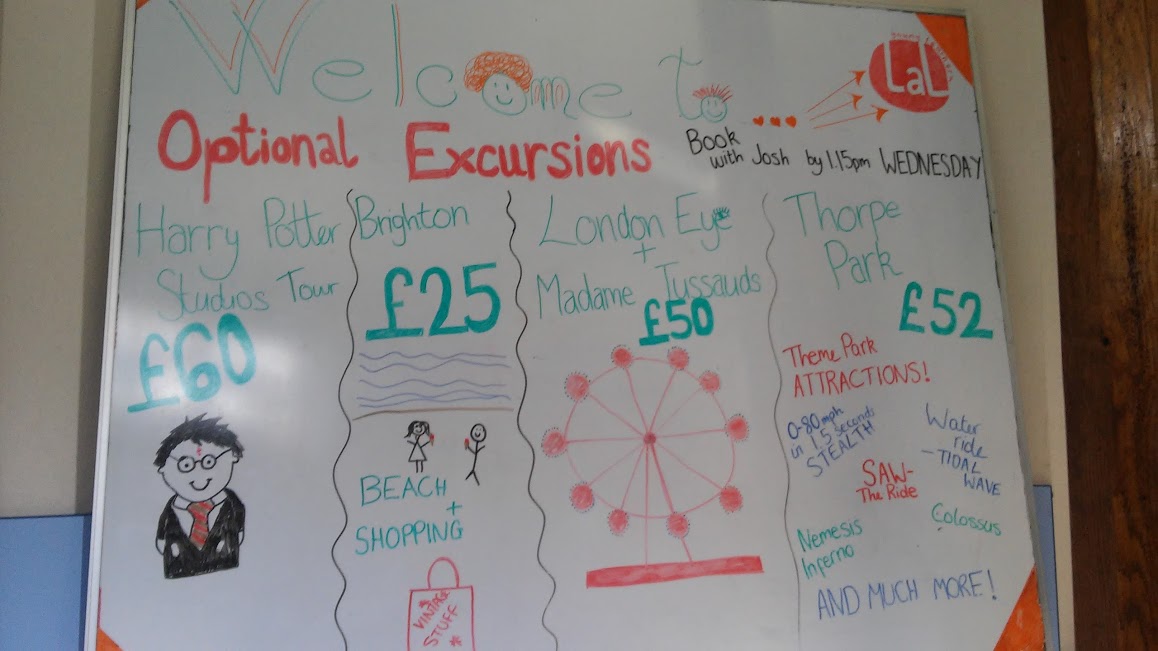 Welcome to
LaL
Optional Excursions
Book
with Josh by 1.15pm WEDNESDAY
Harry Potter
Studios Tour
£60
Brighton
£25
BEACH
+
SHOPPING
VINTAGE
STUFF
London Eye
+
Madame Tussauds
£50
Thorpe
Park
£52
Theme Park
ATTRACTIONS!
0-80mph
in 1.5 seconds
STEALTH
Water
ride
- TIDAL
WAVE
SAW-
The Ride
Colossus
Nemesis
Inferno
AND MUCH MORE!